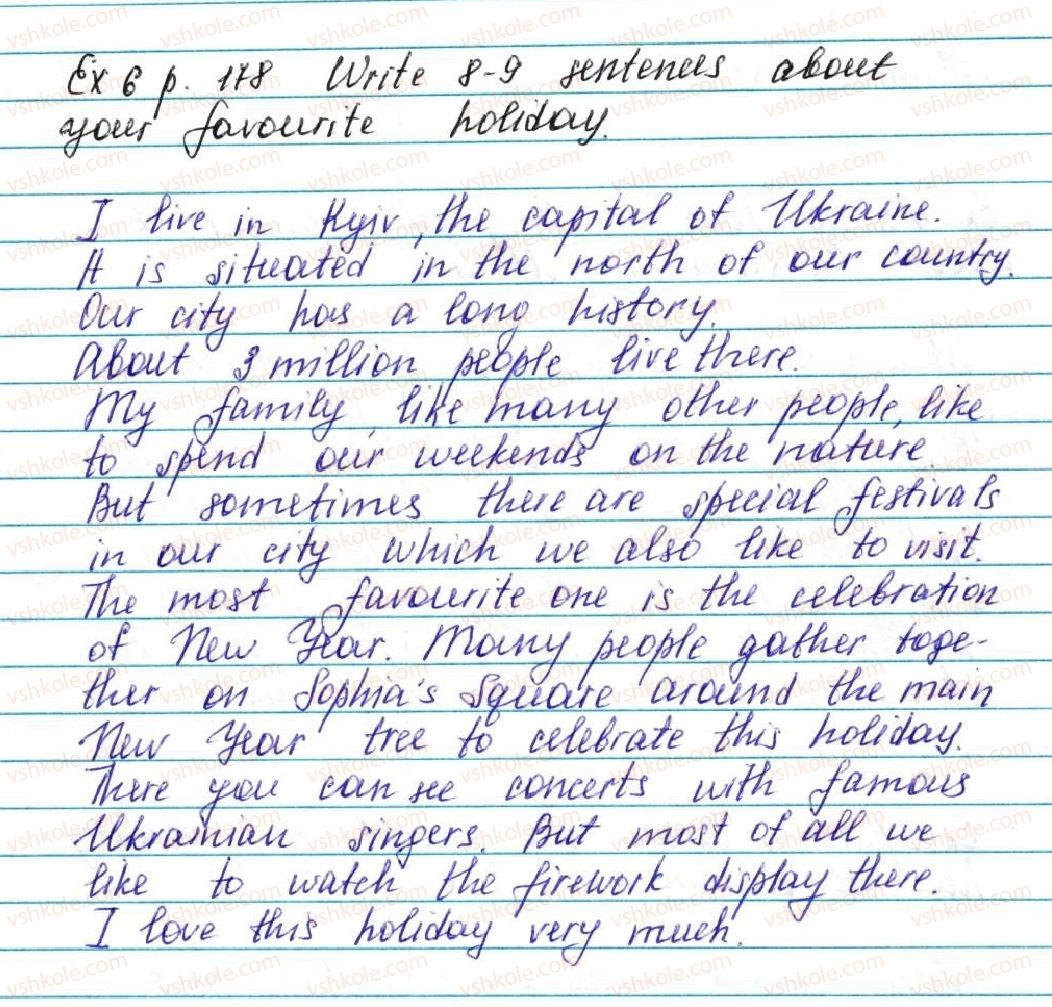 Ex 6 p. 178 Write 8-9 sentences about
your favourite holiday.
I live in Kyiv, the capital of Ukraine.
It is situated in the north of our country.
Our city has a long history.
About 3 million people live there.
My family, like many other people, like
to spend our weekends on the nature.
But sometimes there are special festivals
in our city which we also like to visit.
The most favourite one is the celebration
of New Year. Many people gather toge-
ther on Sophia's Square around the main
New Year tree to celebrate this holiday.
There you can see concerts with famous
Ukrainian singers. But most of all we
like to watch the firework display there.
I love this holiday very much.
vshkole.com